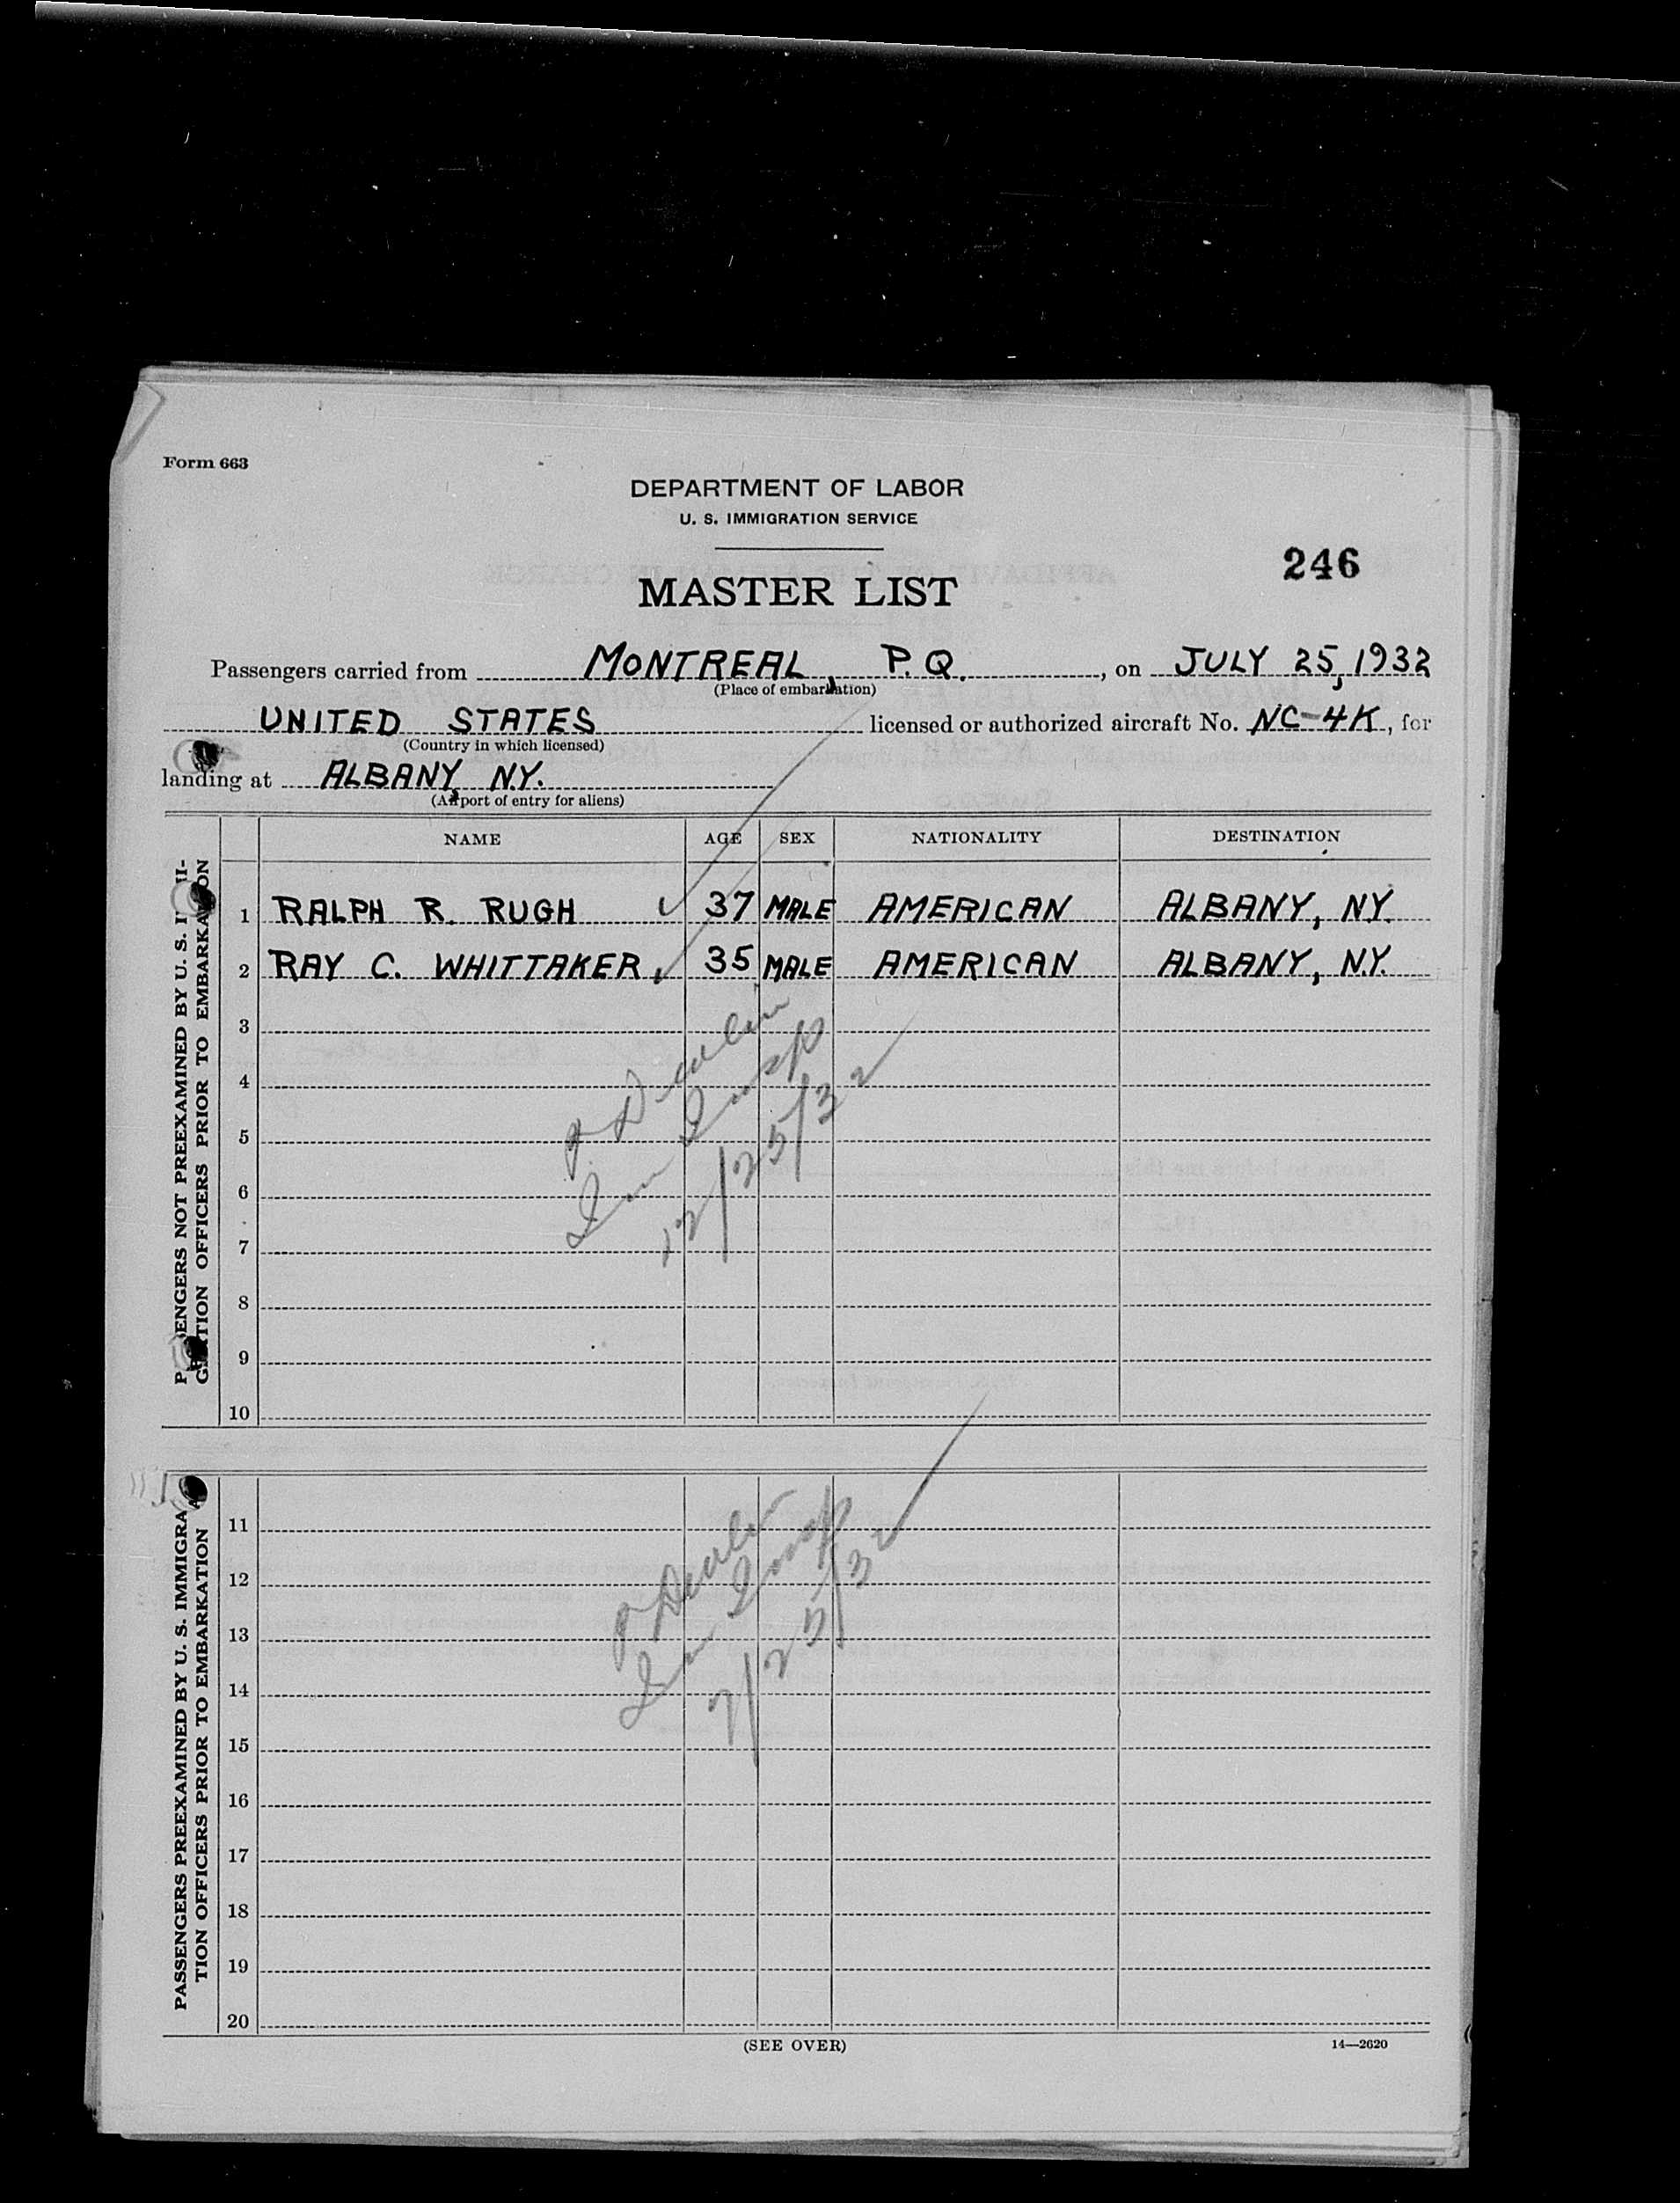 Form 663
DEPARTMENT OF LABOR
U. S. IMMIGRATION SERVICE
246
MASTER LIST
Passengers carried from MONTREAL, P.Q., on JULY 25, 1932
(Place of embarkation)
UNITED STATES licensed or authorized aircraft No. NC-4K, for
(Country in which licensed)
landing at ALBANY, N.Y.
(Airport of entry for aliens)
NAME AGE SEX NATIONALITY DESTINATION
PASSENGERS NOT PREEXAMINED BY U. S. IMMI-
GRATION OFFICERS PRIOR TO EMBARKATION
1 RALPH R. RUGH ✓ 37 MALE AMERICAN ALBANY, N.Y.
2 RAY C. WHITTAKER ✓ 35 MALE AMERICAN ALBANY, N.Y.
3
4
5
6
7
8
9
10
Devlin
Imm Insp
/25/32
PASSENGERS PREEXAMINED BY U. S. IMMIGRA-
TION OFFICERS PRIOR TO EMBARKATION
11
12
13
14
15
16
17
18
19
20
Devlin
Imm Insp
7/25/32
(SEE OVER)
14—2620